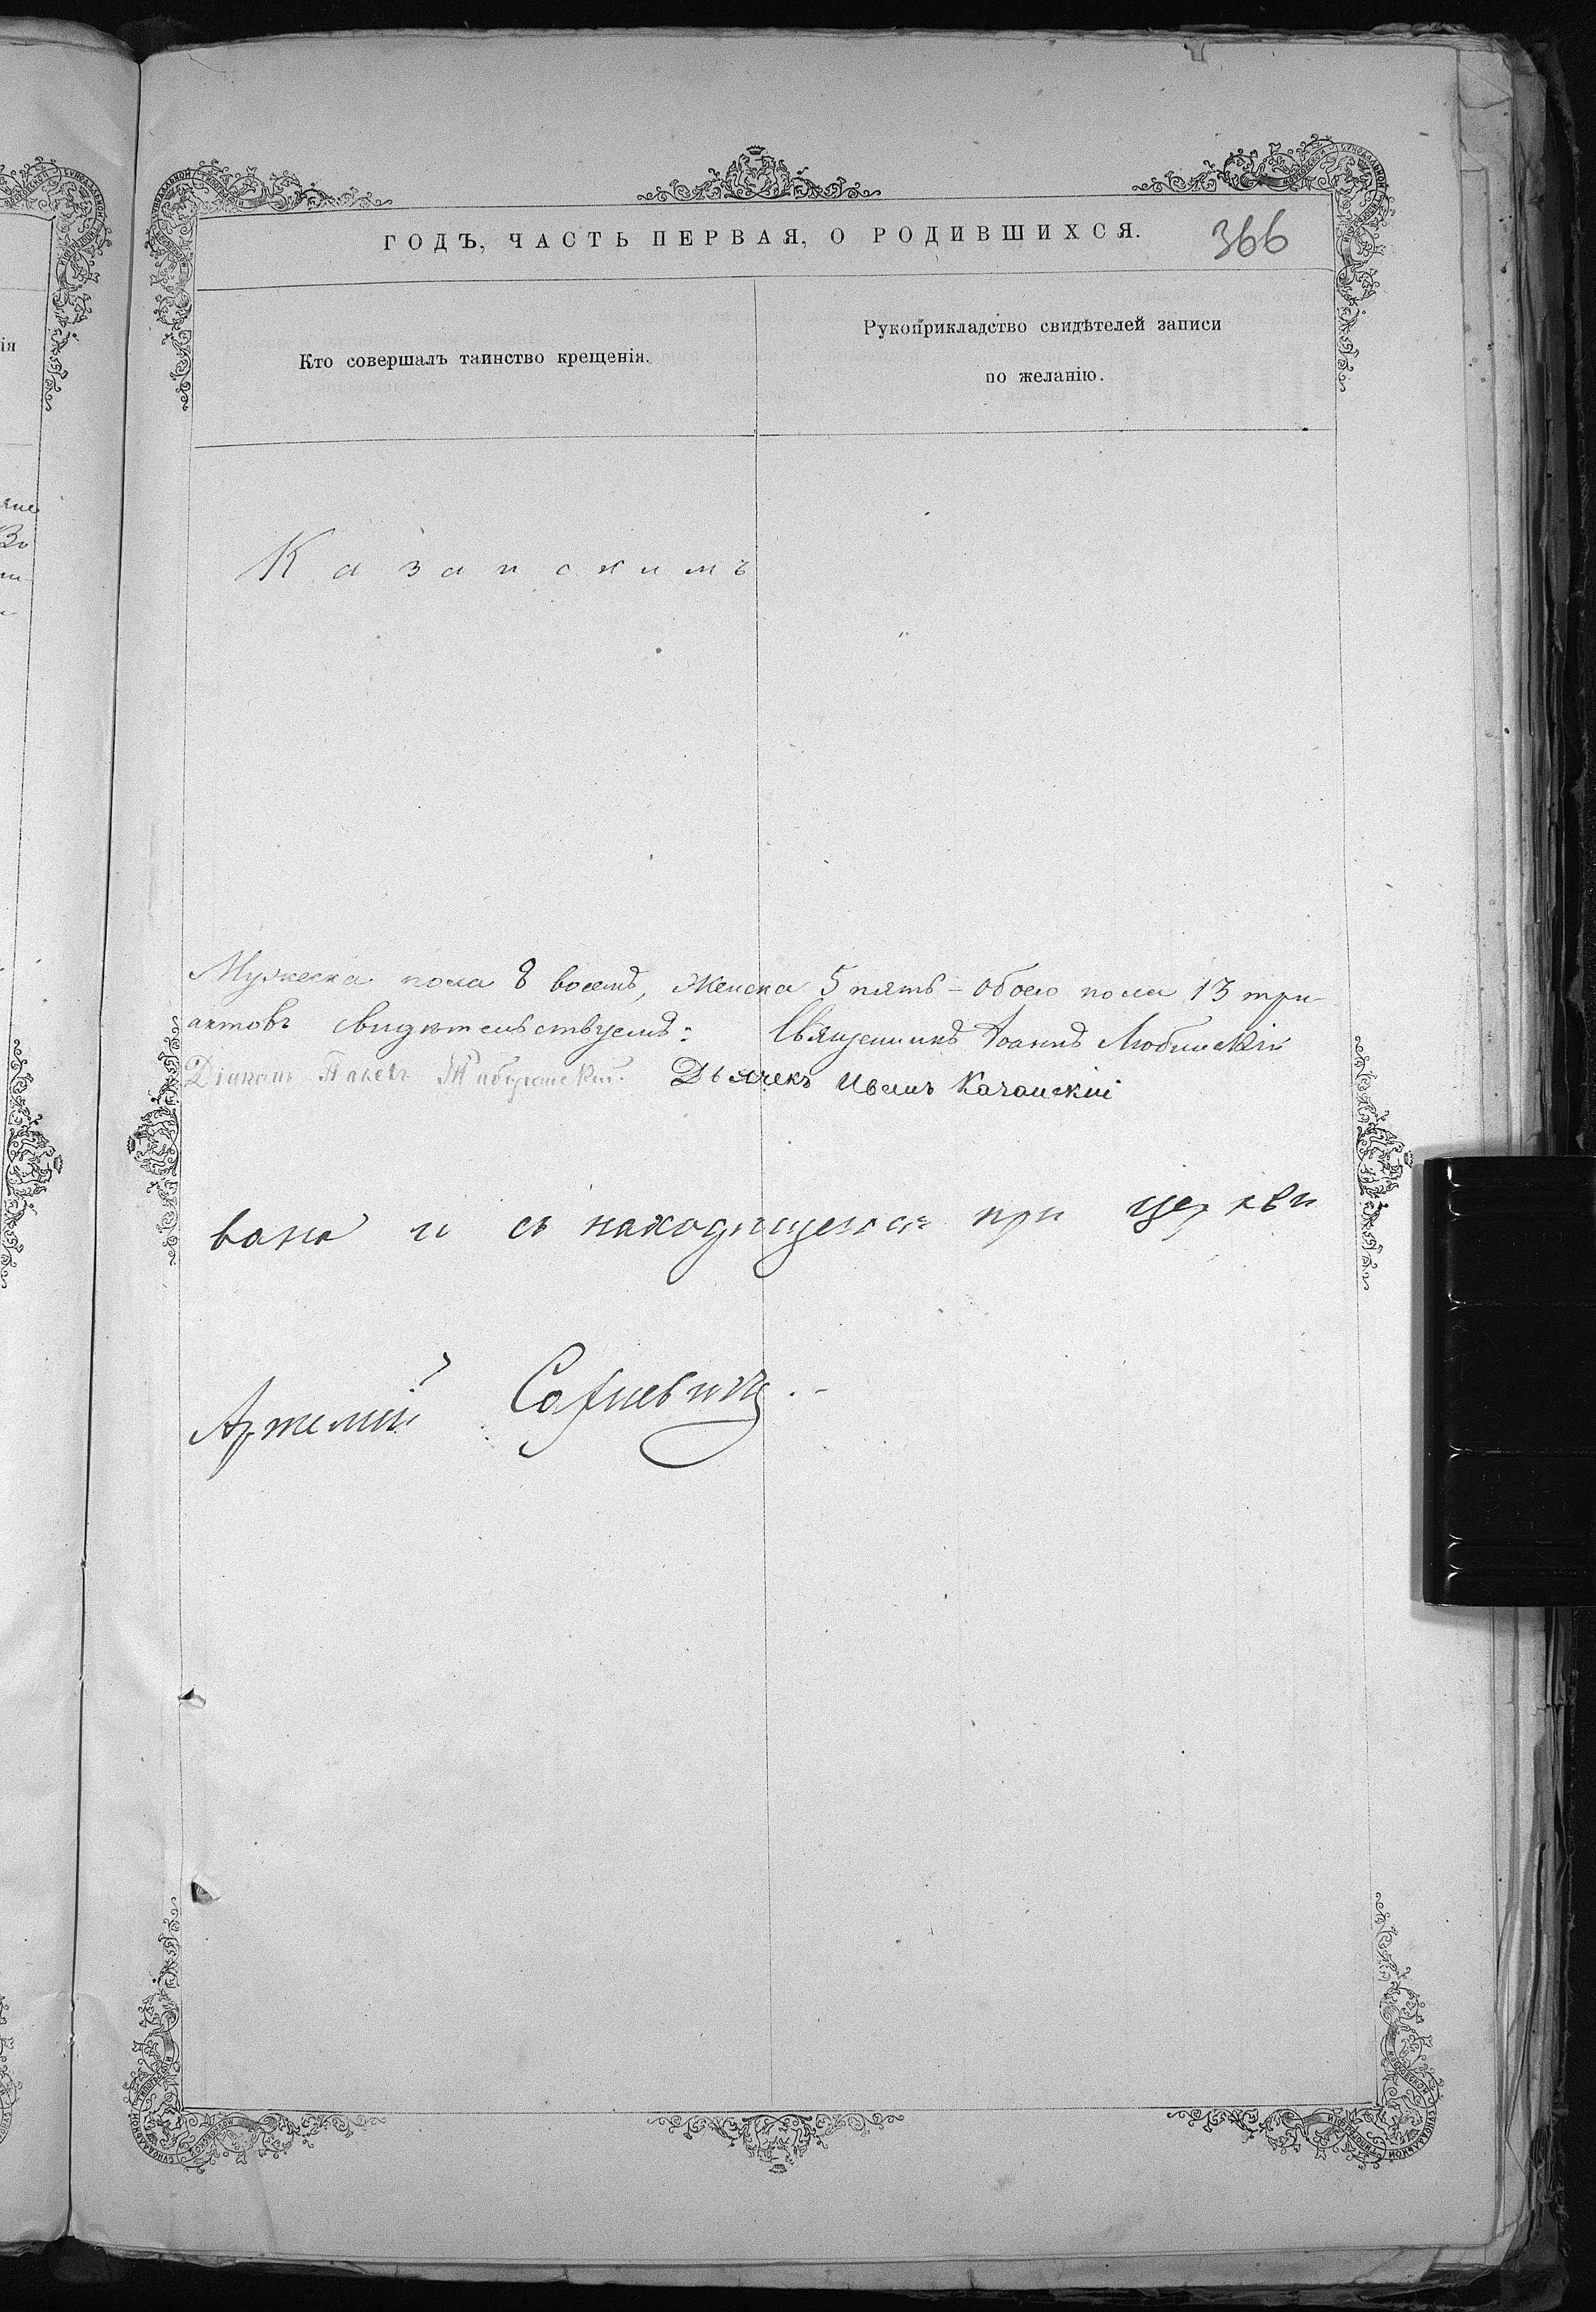 ГОДЪ, ЧАСТЬ ПЕРВАЯ, О РОДИВШИХСЯ.
366
Кто совершалъ таинство крещенія.
Рукоприкладство свидѣтелей записи
по желанію.
Казанскимъ
Мужеска пола 8 восемь, Женска 5 пять – обоего пола 13 три-
актовъ свидѣтельствуемъ: Священникъ Іоаннъ Любинскій
Діаконъ Павелъ Дьячекъ Иванъ Качанскій
вана и съ находящеюся при церкви
Артемій